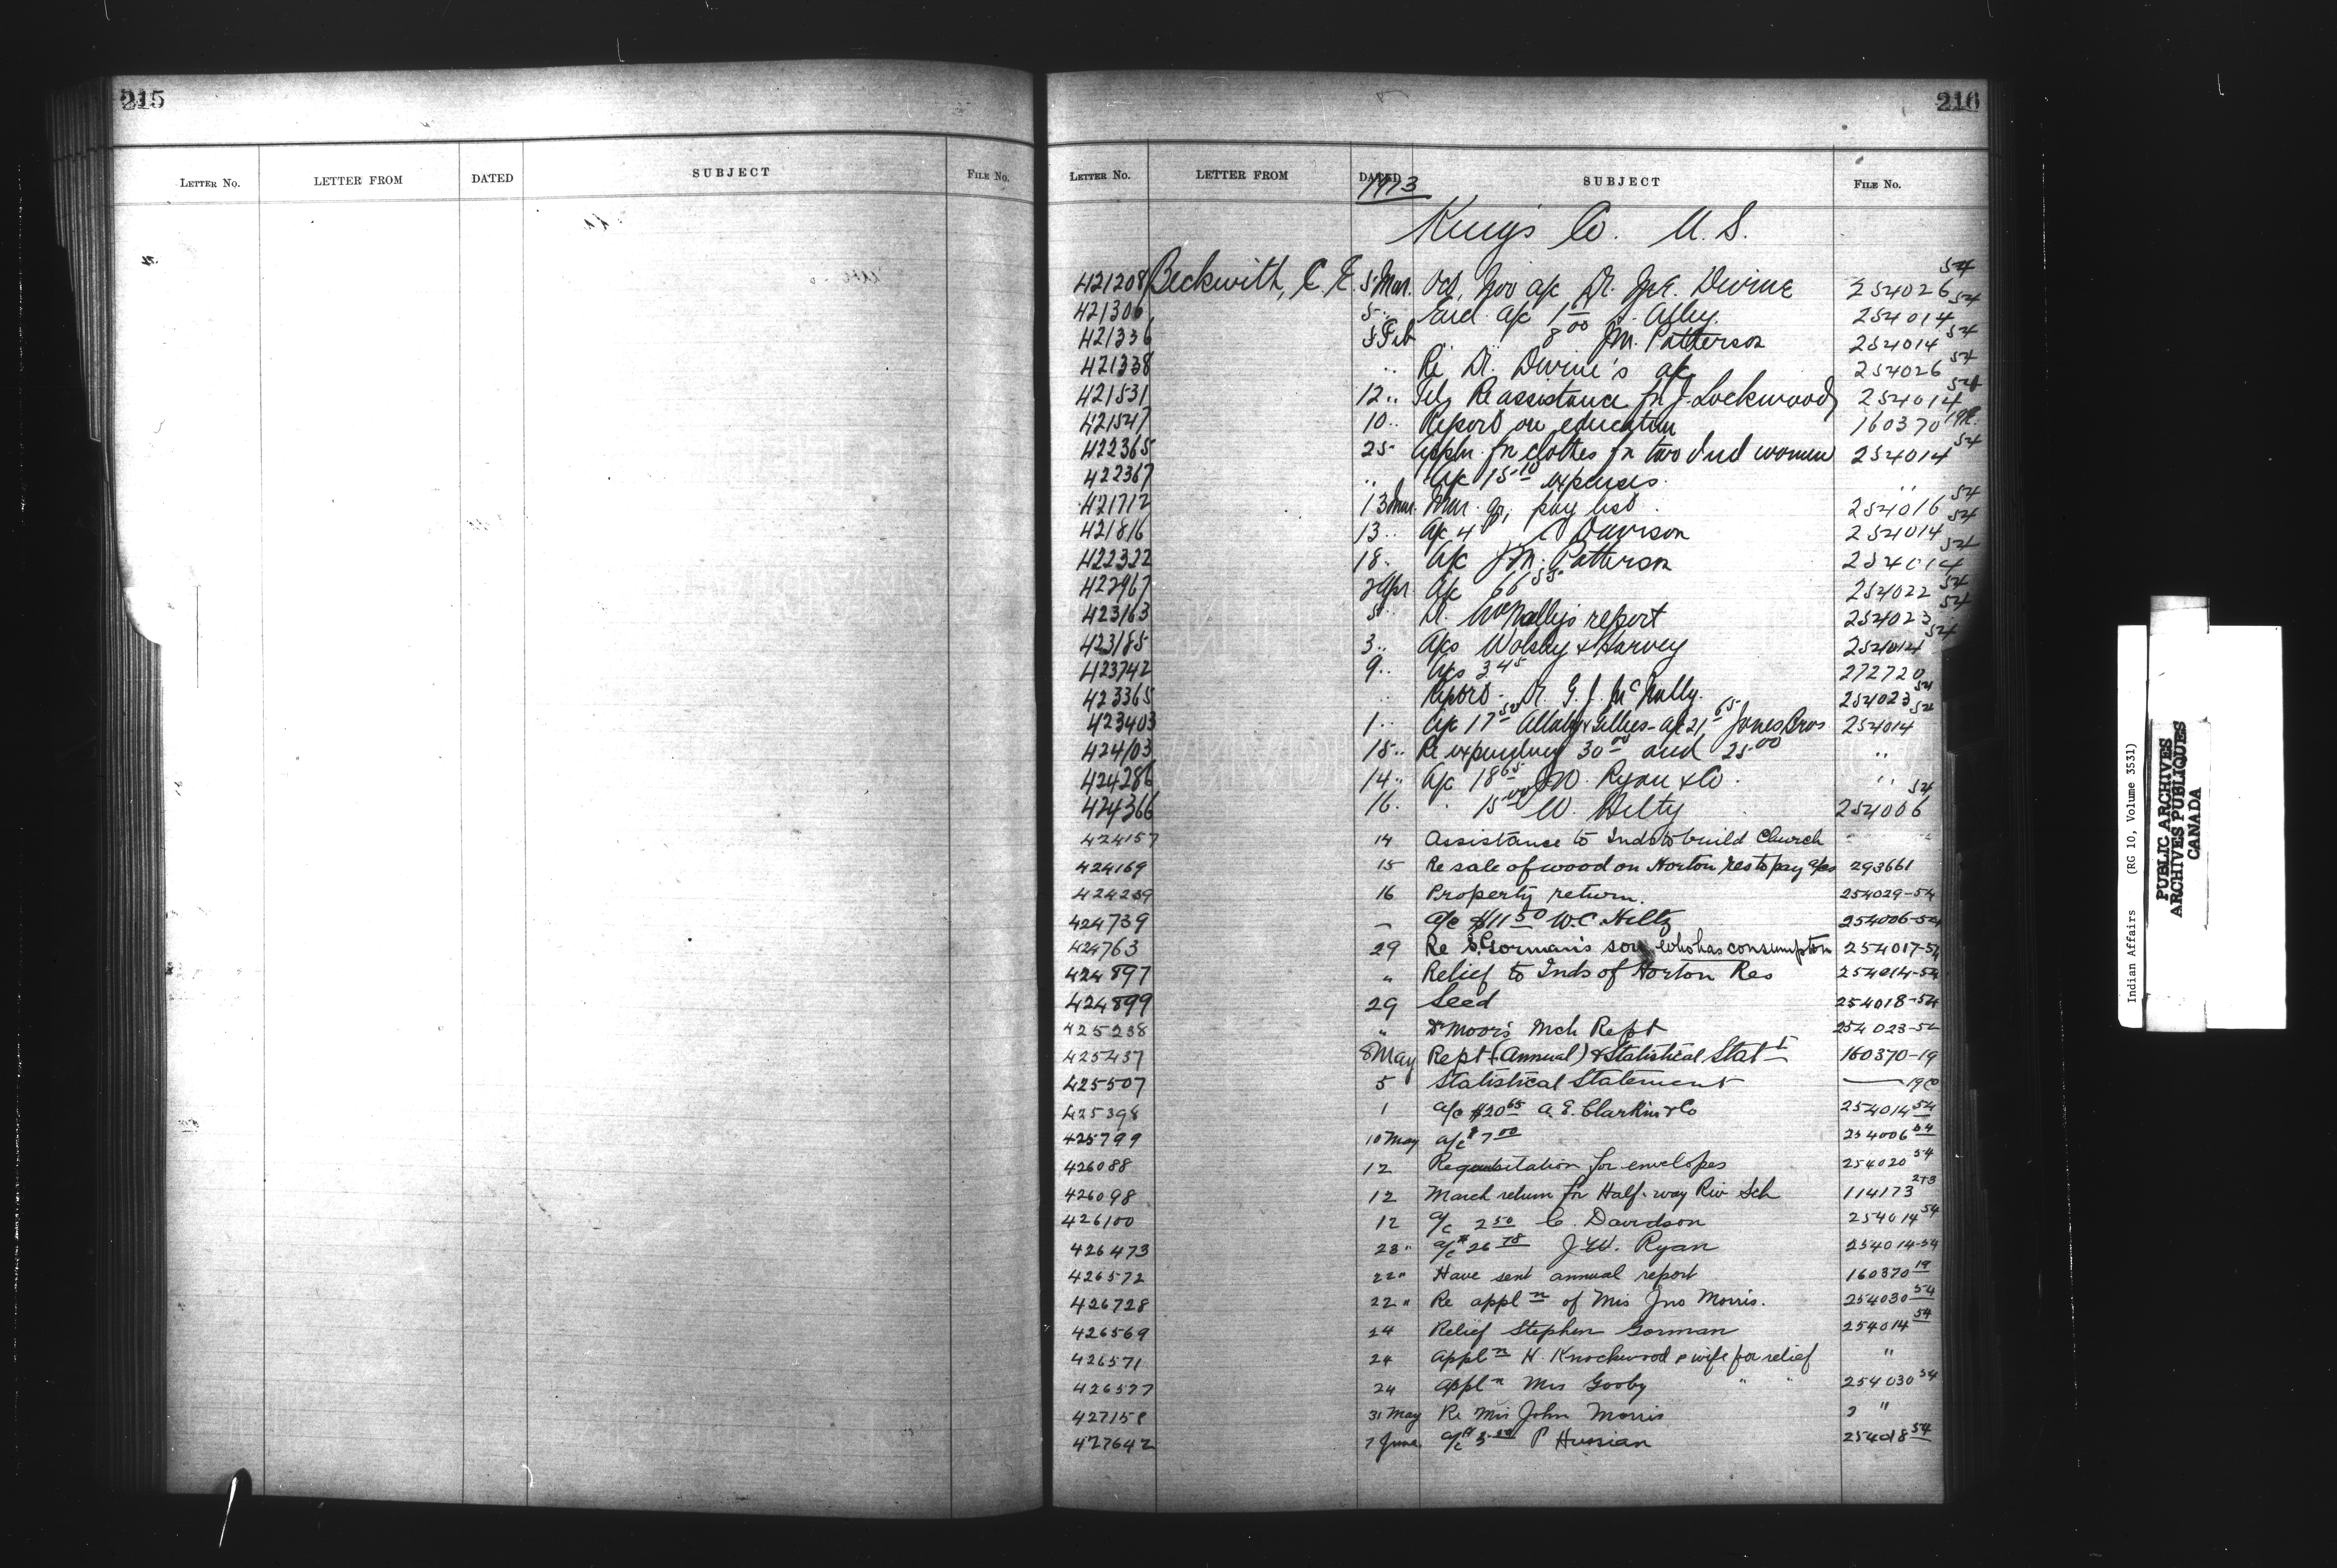 215
LETTER NO. LETTER FROM DATED SUBJECT FILE NO.
216
LETTER NO. LETTER FROM DATED SUBJECT FILE NO.
1913
King's Co. N. S.
421208 Beckwith, C. E. 5 Mar. Oct, Nov a/c Dr. Jno. Devine 254026 54
421306 5 .. a/c 1 00 Alley 254014 54
421336 5 Feb .. 8 00 J.M. Patterson 254014 54
421338 .. Re Dr. Devine's a/c 254026 54
421531 12 .. Tel. Re assistance for J. Lockwood 254014 54
421547 10 .. Report on education 160370 19
422365 25 Appln. for clothes for two Ind women 254014 54
422367 .. a/c 15 10 expenses. ..
421712 13 Mar. Mar. qr. pay list 254016 54
421816 13 .. a/c 4 C Davison 254014 54
422322 18 . a/c J.M. Patterson 254014 54
422967 2 Apr a/c 66 55 254022 54
423163 5 .. Dr. McNally's report 254023 54
423185 3 .. a/cs Wolsley & Harvey 254014 54
423742 9 .. a/cs 3 45 272720
423365 .. Report - Dr. G. J. McNally. 254023 54
423403 1 .. a/c 17 50 & Gillies - a/c 21 65 Jones Bros 254014 54
424103 15 .. Re expending 30 00 and 25 00 ..
424286 14 .. a/c 18 65 J.W. Ryan & Co. ..
424366 16 . . 15 00 W. Hilty 254006 54
424157 14 Assistance to Inds to build Church
424169 15 Re sale of wood on Horton res to pay a/cs 293661
424239 16 Property return. 254029-54
424739 — a/c $11 50 W.C. Hiltz 254006-54
424763 29 Re S. Gorman's son who has consumpton 254017-54
424897 " Relief to Inds of Horton Res 254014-54
424899 29 Seed 254018-54
425238 " Dr Moor's Mch Rept 254023-54
425437 8 May Rept (Annual) & Statistical Statt 160370-19
425507 5 Statistical Statement — 19
425398 1 a/c $20 65 A. E. Clarkin & Co 254014 54
425799 10 May a/c $7 00 254006 54
426088 12 Requisitation for envelopes 254020 54
426098 12 March return for Half-way Riv Sch 114173
426100 12 a/c 2 50 C. Davidson 254014 54
426473 28 " a/c $26 78 J.W. Ryan 254014-54
426572 22 " Have sent annual report 160370 19
426728 22 " Re appln of Mrs Jno Morris. 254030 54
426569 24 Relief Stephen Gorman 254014 54
426571 24 Appln H. Knockwood & wife for relief "
426577 24 Appln Mrs Gooby " " 254030 54
427158 31 May Re Mrs John Morris "
427642 7 June a/c $ P Hussian 25408 54
Indian Affairs (RG 10, Volume 3531)
PUBLIC ARCHIVES
ARCHIVES PUBLIQUES
CANADA